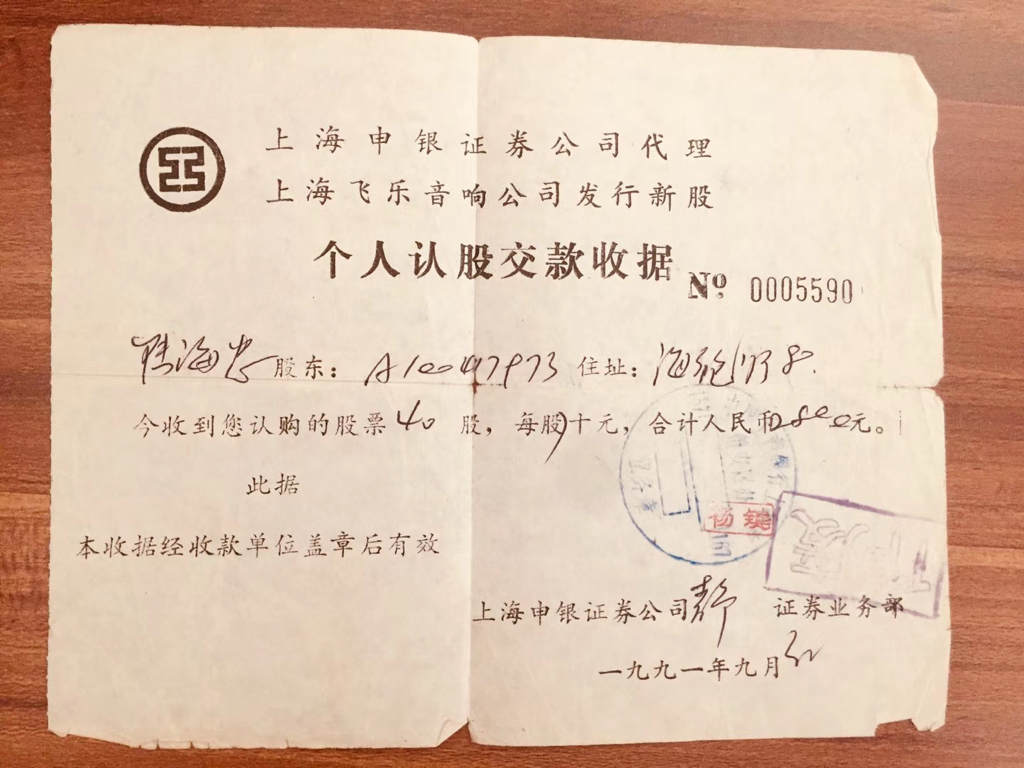 上海申银证券公司代理
上海飞乐音响公司发行新股
个人认股交款收据
№ 0005590
海忠 股东： A100 住址：海
今收到您认购的股票 40 股，每股 十元，合计人民币 800元。
此据
本收据经收款单位盖章后有效
杨键
上海申银证券公司静 证券业务部
一九九一年九月